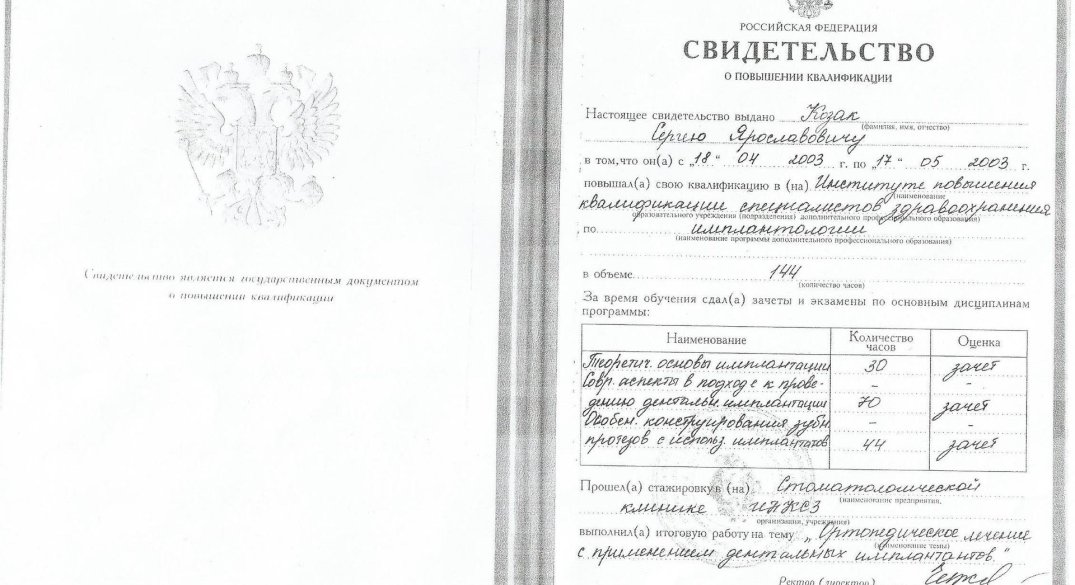 Свидетельство является государственным документом
о повышении квалификации
РОССИЙСКАЯ ФЕДЕРАЦИЯ
СВИДЕТЕЛЬСТВО
О ПОВЫШЕНИИ КВАЛИФИКАЦИИ
Настоящее свидетельство выдано Козак
(фамилия, имя, отчество)
Сергею Ярославовичу
в том, что он(а) с „18“ 04 2003 г. по „17“ 05 2003 г.
повышал(а) свою квалификацию в (на) Институте повышения
(наименование
квалификации специалистов здравоохранения
образовательного учреждения (подразделения) дополнительного профессионального образования)
по имплантологии
(наименование программы дополнительного профессионального образования)
в объеме 144
(количество часов)
За время обучения сдал(а) зачеты и экзамены по основным дисциплинам
программы:
Наименование Количество часов Оценка
Теоретич. основы имплантации 30 зачет
Совр. аспекты в подходе к прове- - -
дению дентальн. имплантации 70 зачет
Особен. конструирования зубн. - -
протезов с использ. имплантатов 44 зачет
Прошел(а) стажировку в (на) Стоматологической
(наименование предприятия,
клинике ИПКСЗ
организации, учреждения)
выполнил(а) итоговую работу на тему „Ортопедическое лечение
(наименование темы)
с применением дентальных имплантантов“
Ректор (директор)